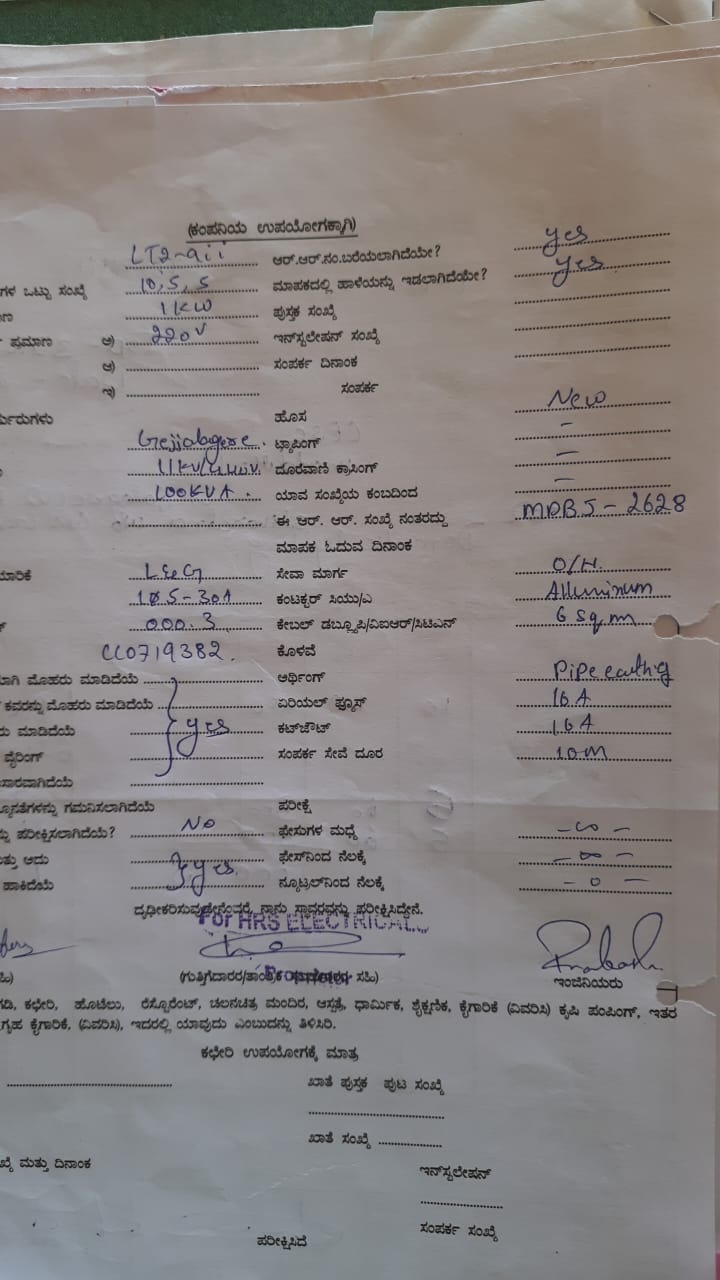 (ಕಂಪನಿಯ ಉಪಯೋಗಕ್ಕಾಗಿ)
LT2-aii ಆರ್.ಆರ್.ನಂ.ಬರೆಯಲಾಗಿದೆಯೇ? yes
ಗಳ ಒಟ್ಟು ಸಂಖ್ಯೆ 10, 5, 5 ಮಾಪಕದಲ್ಲಿ ಹಾಳೆಯನ್ನು ಇಡಲಾಗಿದೆಯೇ? yes
1 KW ಪುಸ್ತಕ ಸಂಖ್ಯೆ
ಪ್ರಮಾಣ ಅ) 220V ಇನ್‌ಸ್ಟಲೇಷನ್ ಸಂಖ್ಯೆ
ಆ) ಸಂಪರ್ಕ ದಿನಾಂಕ
ಇ) ಸಂಪರ್ಕ
ಹೊಸ New
Gejjalagere. ಟ್ಯಾಪಿಂಗ್ –
11KV/ ದೂರವಾಣಿ ಕ್ರಾಸಿಂಗ್ –
100KVA. ಯಾವ ಸಂಖ್ಯೆಯ ಕಂಬದಿಂದ –
ಈ ಆರ್. ಆರ್. ಸಂಖ್ಯೆ ನಂತರದ್ದು MDBS-2628
ಮಾಪಕ ಓದುವ ದಿನಾಂಕ
L&G ಸೇವಾ ಮಾರ್ಗ O/H.
-30A ಕಂಟಕ್ಟರ್ ಸಿಯು/ಎ Alluminum
000.3 ಕೇಬಲ್ ಡಬ್ಲ್ಯೂಪಿ/ವಿಐಆರ್/ಸಿಟಿಎಸ್ 6 sq.m
CC0719382. ಕೊಳವೆ
ಮೊಹರು ಮಾಡಿದೆಯೆ ಅರ್ಥಿಂಗ್ Pipe earthig
ಕವರನ್ನು ಮೊಹರು ಮಾಡಿದೆಯೆ ಏರಿಯಲ್ ಫ್ಯೂಸ್ 16 A
ಮಾಡಿದೆಯೆ yes ಕಟ್‌ಔಟ್ 16A
ವೈರಿಂಗ್ ಸಂಪರ್ಕ ಸೇವೆ ದೂರ 10m
ಗಮನಿಸಲಾಗಿದೆಯೆ ಪರೀಕ್ಷೆ
ಪರೀಕ್ಷಿಸಲಾಗಿದೆಯೆ? NO ಫೇಸುಗಳ ಮಧ್ಯೆ – ∞ –
ಅದು ಫೇಸ್‌ನಿಂದ ನೆಲಕ್ಕೆ – ∞ –
ಹಾಕಿದೆಯೆ yes. ನ್ಯೂಟ್ರಲ್‌ನಿಂದ ನೆಲಕ್ಕೆ – 0 –
ದೃಢೀಕರಿಸುವುದೇನೆಂದರೆ, ನಾನು ಸ್ಥಾವರವನ್ನು ಪರೀಕ್ಷಿಸಿದ್ದೇನೆ.
For HRS ELECTRICALS
Prakash
Proprietor
(ಗುತ್ತಿಗೆದಾರರ/ ಸಹಿ) ಇಂಜಿನಿಯರು
ಕಛೇರಿ, ಹೊಟೆಲು, ರೆಸ್ಟೊರೆಂಟ್, ಚಲನಚಿತ್ರ ಮಂದಿರ, ಆಸ್ಪತ್ರೆ, ಧಾರ್ಮಿಕ, ಶೈಕ್ಷಣಿಕ, ಕೈಗಾರಿಕೆ (ವಿವರಿಸಿ) ಕೃಷಿ ಪಂಪಿಂಗ್, ಇತರ
ಗೃಹ ಕೈಗಾರಿಕೆ, (ವಿವರಿಸಿ), ಇದರಲ್ಲಿ ಯಾವುದು ಎಂಬುದನ್ನು ತಿಳಿಸಿರಿ.
ಕಛೇರಿ ಉಪಯೋಗಕ್ಕೆ ಮಾತ್ರ
ಖಾತೆ ಪುಸ್ತಕ ಪುಟ ಸಂಖ್ಯೆ
ಖಾತೆ ಸಂಖ್ಯೆ
ಮತ್ತು ದಿನಾಂಕ ಇನ್‌ಸ್ಟಲೇಷನ್
ಸಂಪರ್ಕ ಸಂಖ್ಯೆ
ಪರೀಕ್ಷಿಸಿದೆ